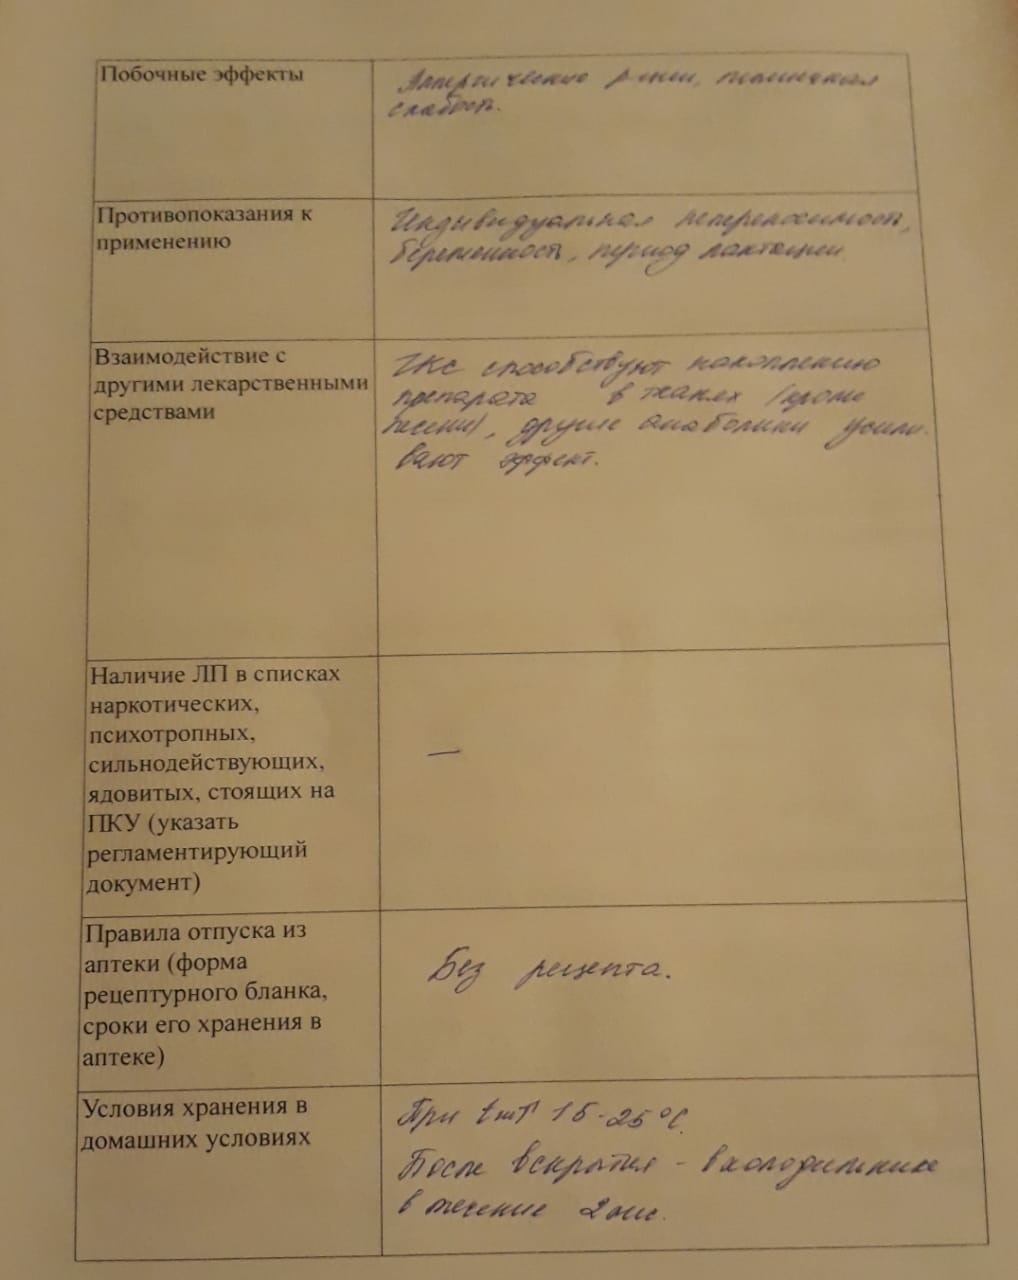 Побочные эффекты
Аллергические р-ции, мышечная
слабость.
Противопоказания к
применению
Индивидуальная непереносимость,
беременность, период лактации
Взаимодействие с
другими лекарственными
средствами
ГКС способствуют накоплению
препарата в тканях (кроме
печени), другие анаболики усили-
вают эффект.
Наличие ЛП в списках
наркотических,
психотропных,
сильнодействующих,
ядовитых, стоящих на
ПКУ (указать
регламентирующий
документ)
—
Правила отпуска из
аптеки (форма
рецептурного бланка,
сроки его хранения в
аптеке)
Без рецепта.
Условия хранения в
домашних условиях
При 15-25°С.
После вскрытия - в холодильнике
в течение 2 мес.